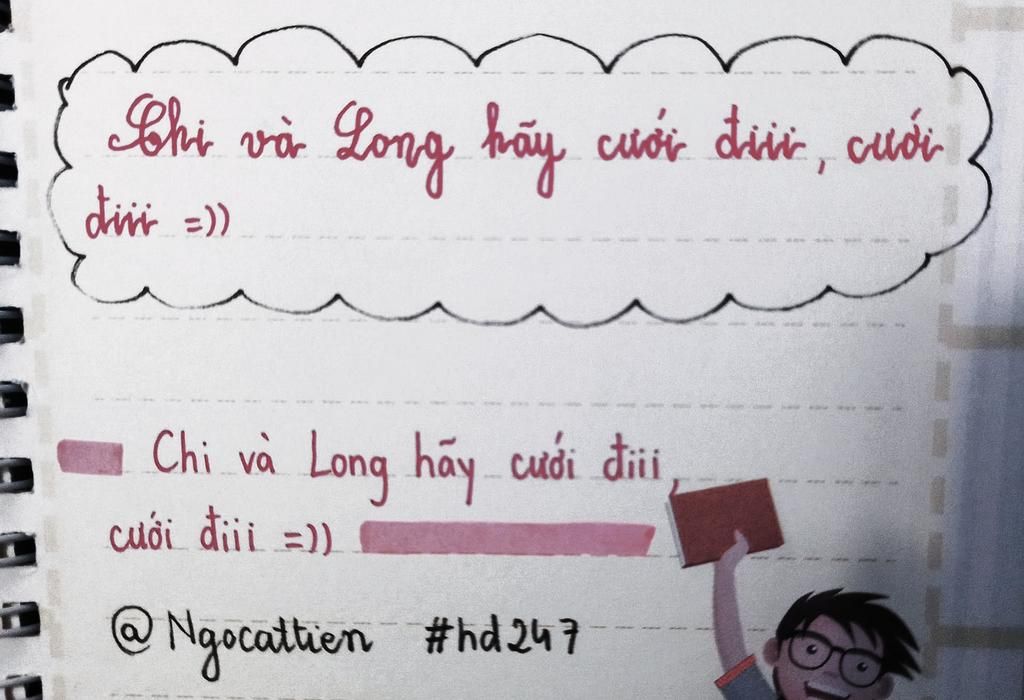 Chi và Long hãy cưới điii, cưới
điii =))
Chi và Long hãy cưới điii,
cưới điii =))
@Ngocattien #hd247